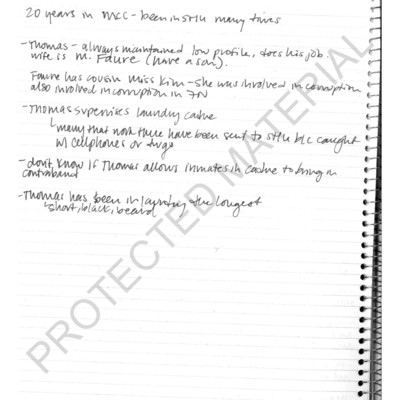 20 years in MCC - been in SHU many times
- Thomas - always maintained low profile, does his job.
wife is M. Faure (have a son).
Faure has cousin Miss Kim - she was involved in corruption
also involved in corruption in 7N
- Thomas supervises laundry cadre
↳ many that work there have been sent to SHU b/c caught
w/ cellphones or drugs
- don't know if Thomas allows inmates in cadre to bring in
contraband
- Thomas has been in laundry the longest
↳ short, black, beard
PROTECTED MATERIAL